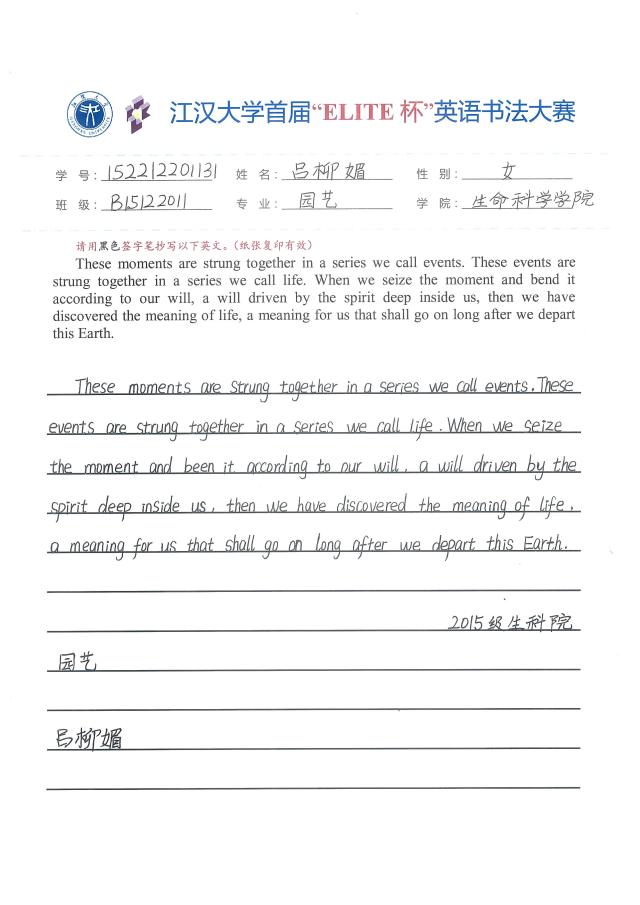 江汉大学首届“ELITE 杯”英语书法大赛
学 号：152212201131 姓 名：吕柳媚 性 别：女
班 级：B15122011 专 业：园艺 学 院：生命科学学院
请用黑色签字笔抄写以下英文。（纸张复印有效）
These moments are strung together in a series we call events. These events are
strung together in a series we call life. When we seize the moment and bend it
according to our will, a will driven by the spirit deep inside us, then we have
discovered the meaning of life, a meaning for us that shall go on long after we depart
this Earth.
These moments are strung together in a series we call events. These
events are strung together in a series we call life. When we seize
the moment and been it according to our will, a will driven by the
spirit deep inside us, then we have discovered the meaning of life,
a meaning for us that shall go on long after we depart this Earth.
2015级生科院
园艺
吕柳媚